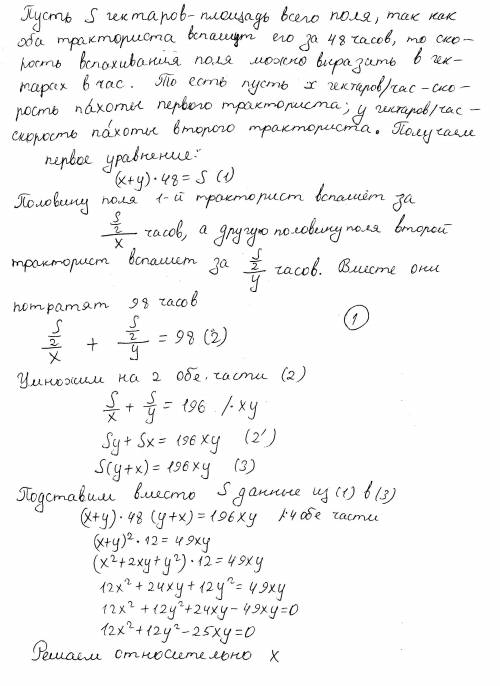 Пусть S гектаров - площадь всего поля, так как
оба тракториста вспашут его за 48 часов, то ско-
рость вспахивания поля можно выразить в гек-
тарах в час. То есть пусть x гектаров/час - ско-
рость пахоты первого тракториста; y гектаров/час -
скорость пахоты второго тракториста. Получаем
первое уравнение:
(x+y)·48 = S (1)
Половину поля 1-й тракторист вспашет за
(S/2)/x часов, а другую половину поля второй
тракторист вспашет за (S/2)/y часов. Вместе они
потратят 98 часов
(S/2)/x + (S/2)/y = 98 (2)
①
Умножим на 2 обе части (2)
S/x + S/y = 196 /·xy
Sy + Sx = 196xy (2')
S(y+x) = 196xy (3)
Подставим вместо S данные из (1) в (3)
(x+y)·48 (y+x) = 196xy /:4 обе части
(x+y)²·12 = 49xy
(x²+2xy+y²)·12 = 49xy
12x² + 24xy + 12y² = 49xy
12x² + 12y² + 24xy - 49xy = 0
12x² + 12y² - 25xy = 0
Решаем относительно x